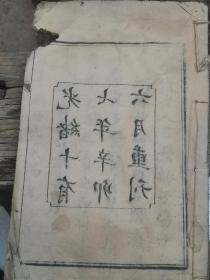 光緒十有
七年辛卯
六月重刊